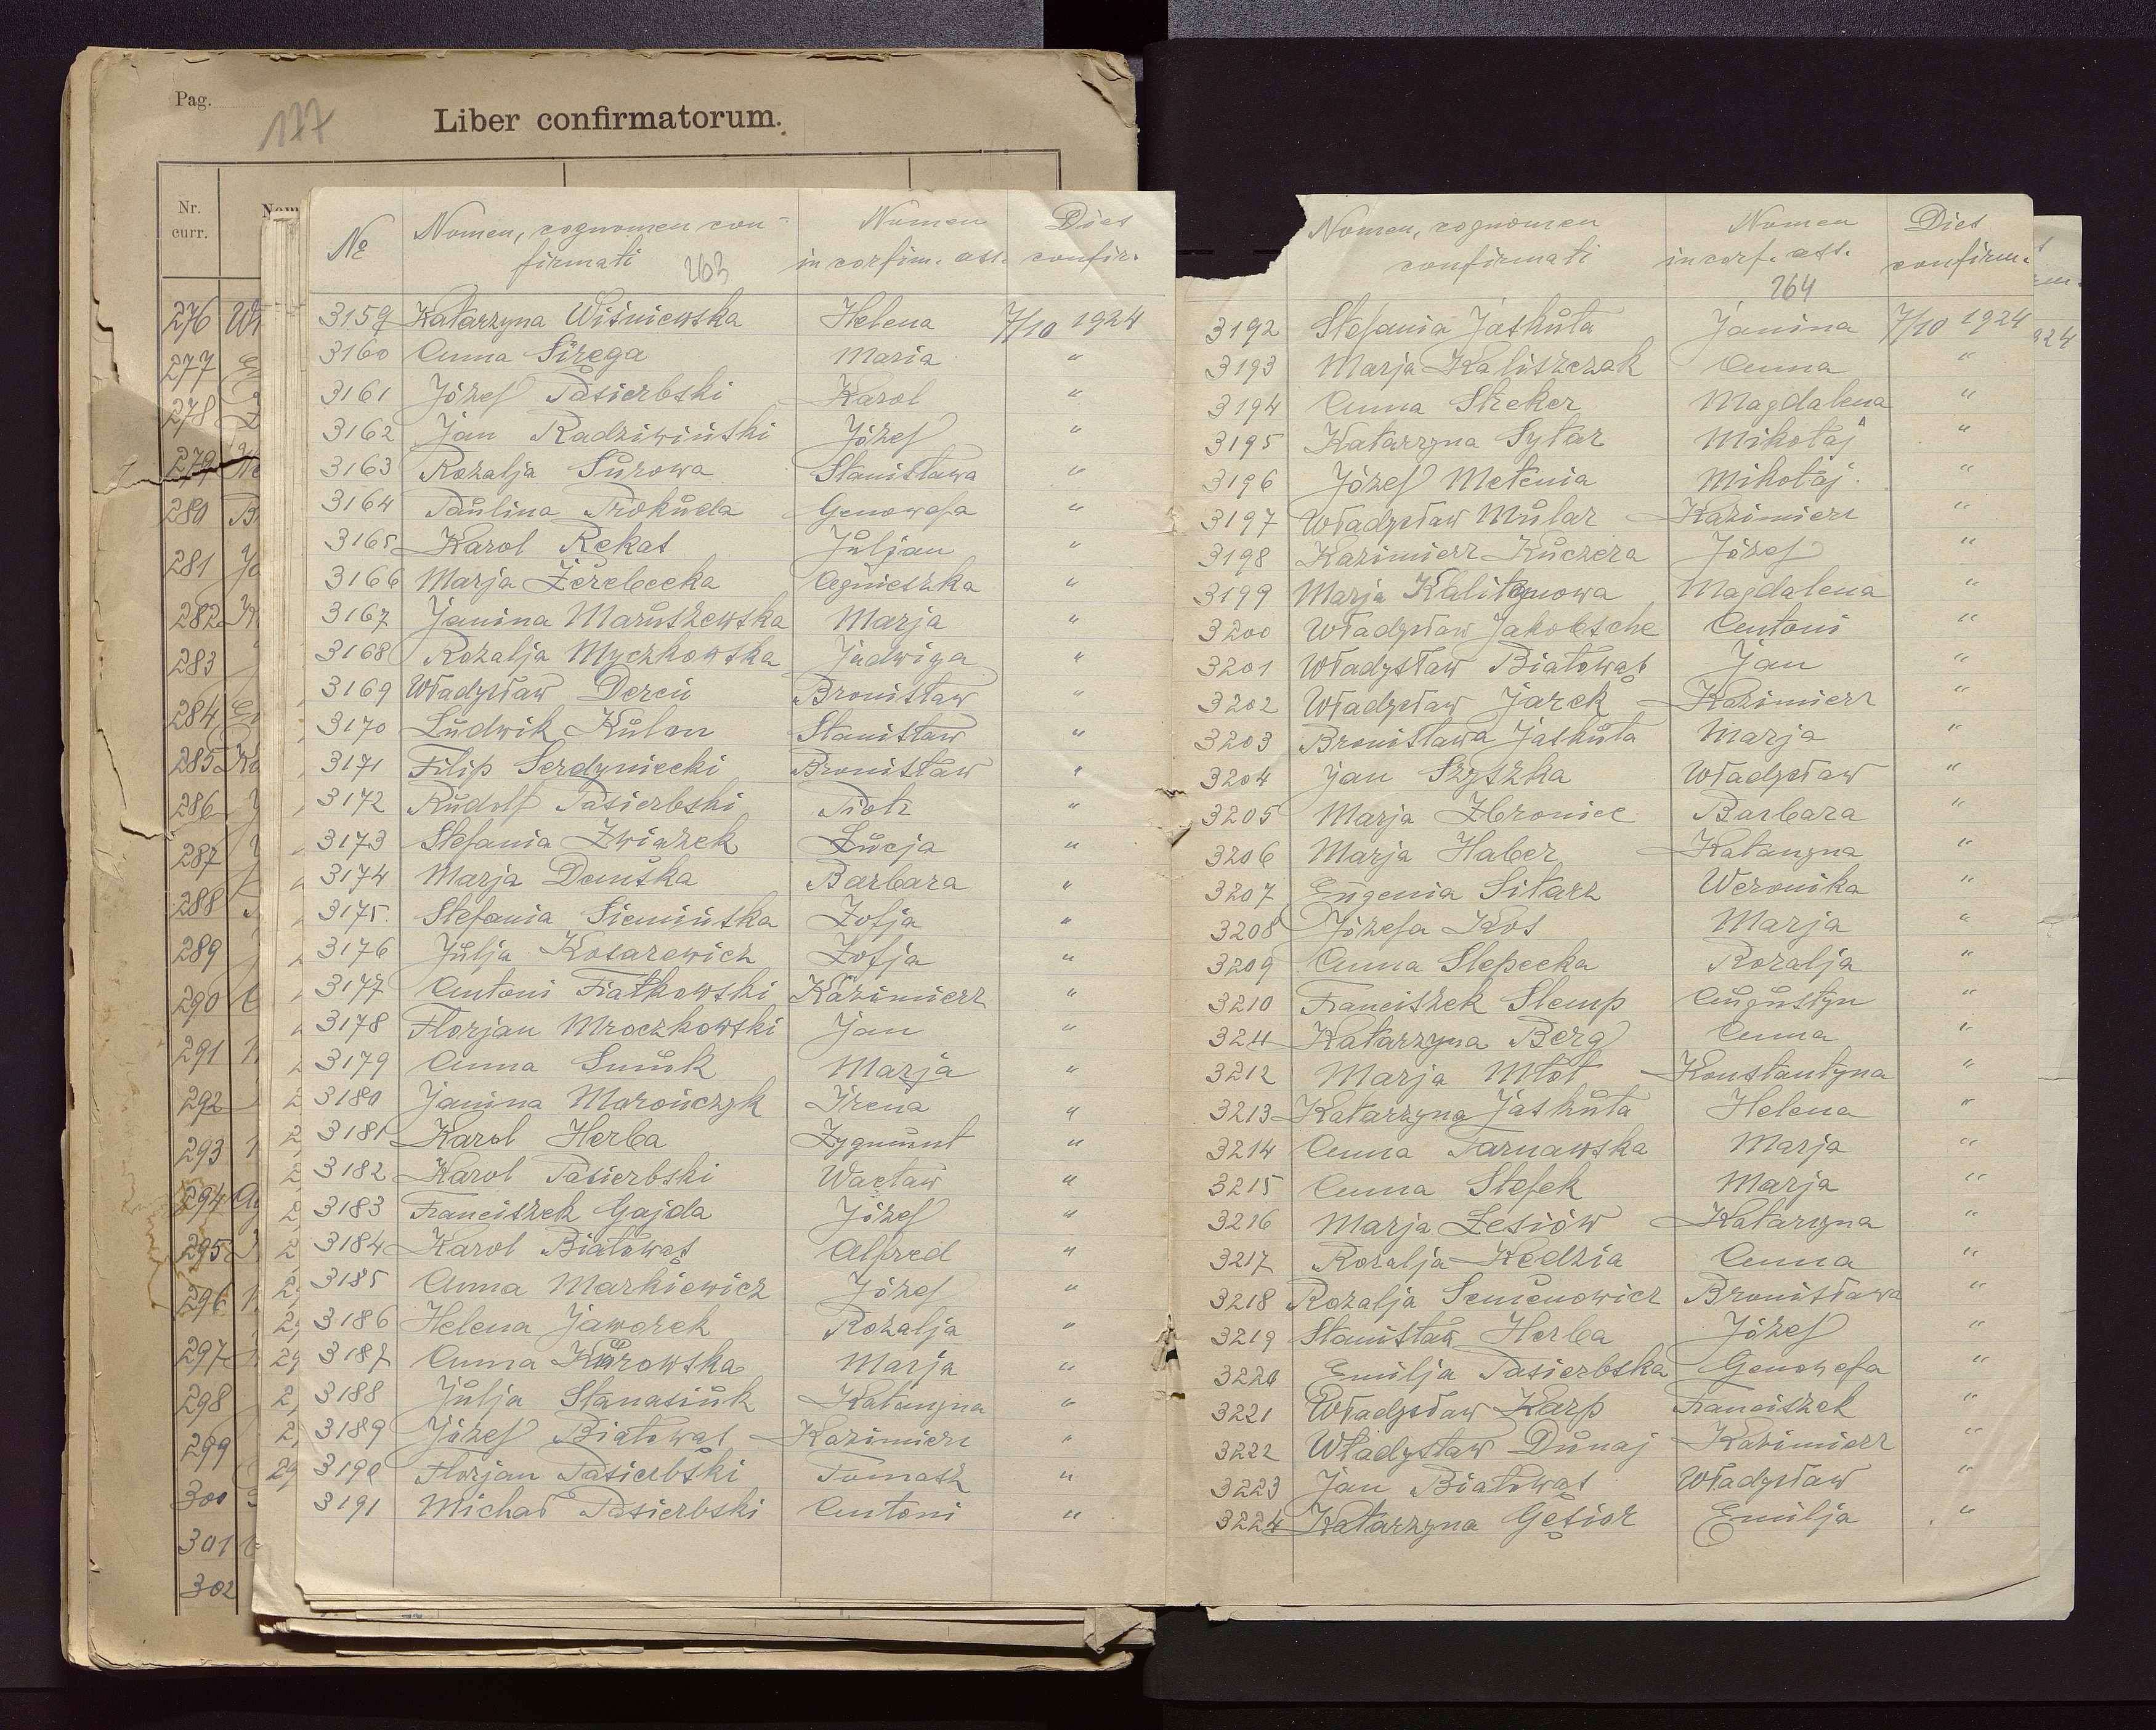 Pag.
177
Liber confirmatorum.
Nr.
curr.
276
277
278
279
280
281
282
283
284
285
286
287
288
289
290
291
292
293
294
295
296
297
298
299
300
301
302
№ Nomen, cognomen con- Nomen Dies
firmati 263 in confirm. ass. confir.
3159 Katarzyna Wiśniewska Helena 7/10 1924
3160 Anna Strzęga Maria "
3161 Józef Pasierbski Karol "
3162 Jan Radziwiński Józef "
3163 Rozalja Surowa Stanisława "
3164 Paulina Prokuda Genowefa "
3165 Karol Rekas Juljan "
3166 Marja Żerebecka Agnieszka "
3167 Janina Maruszewska Marja "
3168 Rozalja Myczkowska Jadwiga "
3169 Władysław Dereń Bronisław "
3170 Ludwik Kulon Stanisław "
3171 Filip Serdyniecki Bronisław "
3172 Rudolf Pasierbski Piotr "
3173 Stefania Związek Łucja "
3174 Marja Dańska Barbara "
3175 Stefania Siemińska Zofja "
3176 Julja Kosarewicz Zofja "
3177 Antoni Fiałkowski Kazimierz "
3178 Florjan Mroczkowski Jan "
3179 Anna Smuk Marja "
3180 Janina Marończyk Irena "
3181 Karol Herba Zygmunt "
3182 Karol Pasierbski Wacław "
3183 Franciszek Gajda Józef "
3184 Karol Białowąs Alfred "
3185 Anna Markiewicz Józef "
3186 Helena Jaworek Rozalja "
3187 Anna Kurowska Marja "
3188 Julja Stanasiuk Katarzyna "
3189 Józef Białowąs Kazimierz "
3190 Florjan Pasierbski Tomasz "
3191 Michał Pasierbski Antoni "
Nomen, cognomen Nomen Dies
confirmati in conf. ass. confirm.
264
3192 Stefania Jaskuła Janina 7/10 1924
3193 Marja Kaliszczak Anna "
3194 Anna Streker Magdalena "
3195 Katarzyna Sytar Mikołaj "
3196 Józef Metenia Mikołaj "
3197 Władysław Mular Kazimierz "
3198 Kazimierz Kuczera Józef "
3199 Marja Kalitanowa Magdalena "
3200 Władysław Jakobsche Antoni "
3201 Władysław Białowąs Jan "
3202 Władysław Jarek Kazimierz "
3203 Bronisława Jaskuła Marja "
3204 Jan Szyszka Władysław "
3205 Marja Zbroniec Barbara "
3206 Marja Haber Katarzyna "
3207 Eugenia Sitarz Weronika "
3208 Józefa Kos Marja "
3209 Anna Slepecka Rozalja "
3210 Franciszek Slemp Augustyn "
3211 Katarzyna Berg Anna "
3212 Marja Młot Konstantyna "
3213 Katarzyna Jaskuła Helena "
3214 Anna Tarnawska Marja "
3215 Anna Stefek Marja "
3216 Marja Lesiów Katarzyna "
3217 Rozalja Kedzia Anna "
3218 Rozalja Semenowicz Bronisława "
3219 Stanisław Herba Józef "
3220 Emilja Pasierbska Genowefa "
3221 Władysław Karp Franciszek "
3222 Władysław Dunaj Kazimierz "
3223 Jan Białowąs Władysław "
3224 Katarzyna Gęsior Emilja "